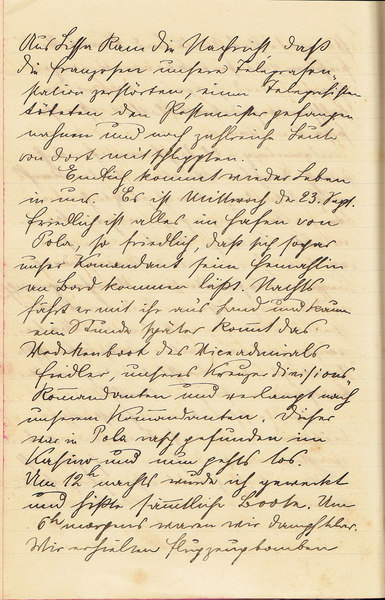 Aus Lissa kam die Nachricht daß
die Franzosen unsere Telegrafen-
station zerstörten, einen Telegrafisten
töteten den Postmeister gefangen
nahmen und noch zahlreiche Leute
von dort mitschleppten.
Endlich kommt wieder Leben
in uns. Es ist Mittwoch der 23. Sept.
Friedlich ist alles im Hafen von
Pola, so friedlich, daß sich sogar
unser Komandant seine Gemahlin
an Bord kommen läßt. Nachts
fährt er mit ihr ans Land und kaum
eine Stunde später komt das
des Viceadmirals
Fiedler, unseres Kreuzerdivisions-
Komandanten und verlangt nach
unserem Komandanten. Dieser
war in Pola rasch gefunden im
Kasino und nun gehts los.
Um 12h nachts wurde ich geweckt
und hißte sämtliche Boote. Um
6h morgens waren wir dampfklar.
Wir erhielten Flugzeugbomben